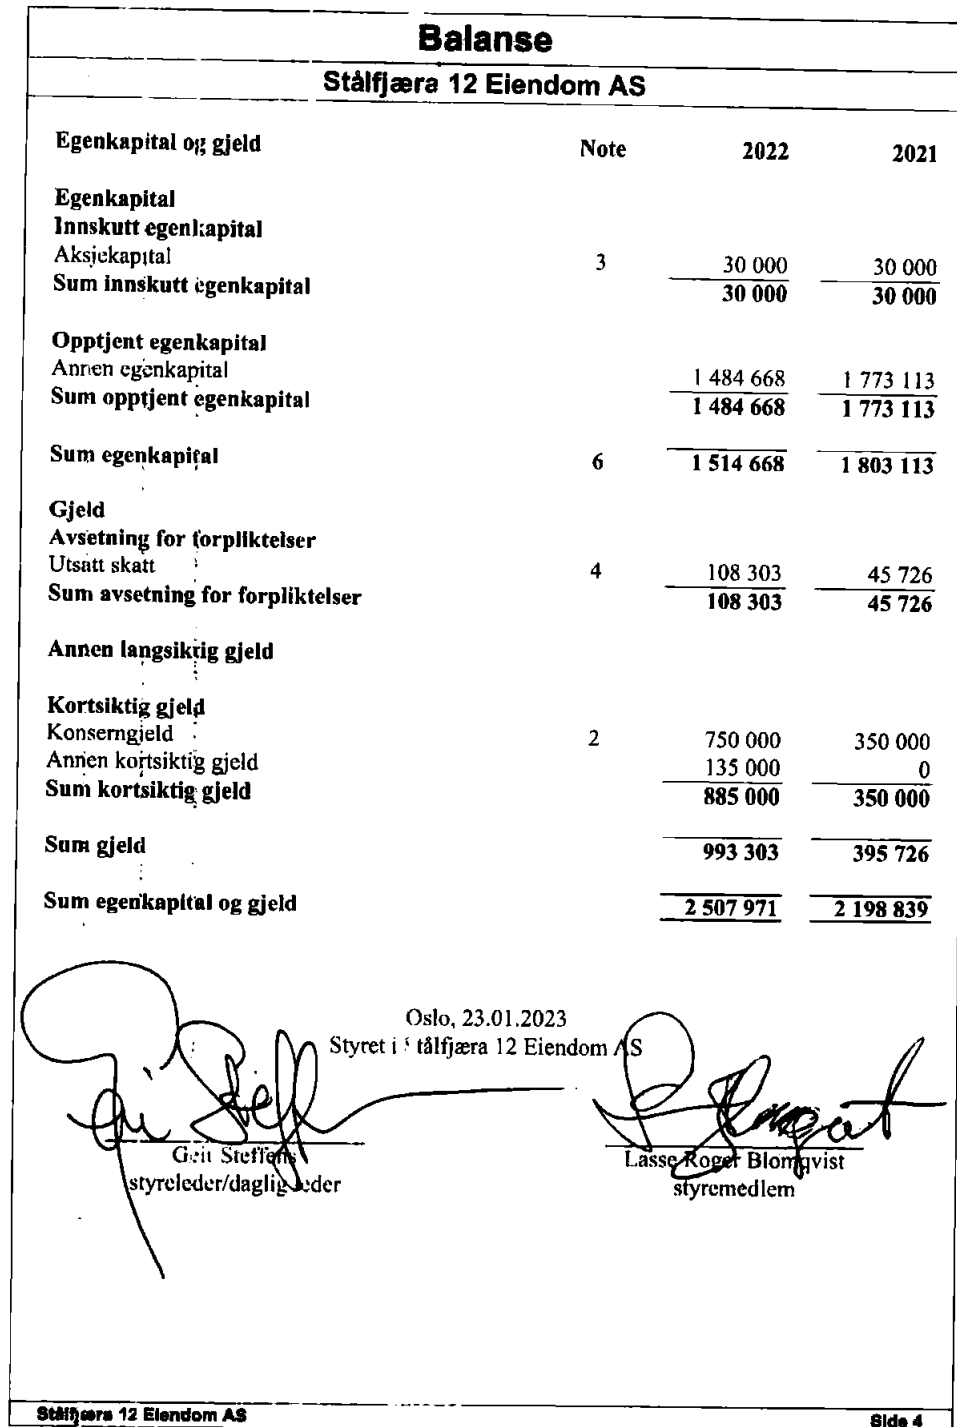 Balanse
Stålfjæra 12 Eiendom AS
Egenkapital og gjeld Note 2022 2021
Egenkapital
Innskutt egenkapital
Aksjekapital 3 30 000 30 000
Sum innskutt egenkapital 30 000 30 000
Opptjent egenkapital
Annen egenkapital 1 484 668 1 773 113
Sum opptjent egenkapital 1 484 668 1 773 113
Sum egenkapital 6 1 514 668 1 803 113
Gjeld
Avsetning for forpliktelser
Utsatt skatt 4 108 303 45 726
Sum avsetning for forpliktelser 108 303 45 726
Annen langsiktig gjeld
Kortsiktig gjeld
Konserngjeld 2 750 000 350 000
Annen kortsiktig gjeld 135 000 0
Sum kortsiktig gjeld 885 000 350 000
Sum gjeld 993 303 395 726
Sum egenkapital og gjeld 2 507 971 2 198 839
Oslo, 23.01.2023
Styret i Stålfjæra 12 Eiendom AS
Steffens Lasse Roger Blomqvist
styreleder/daglig leder styremedlem
Stålfjæra 12 Eiendom AS Side 4